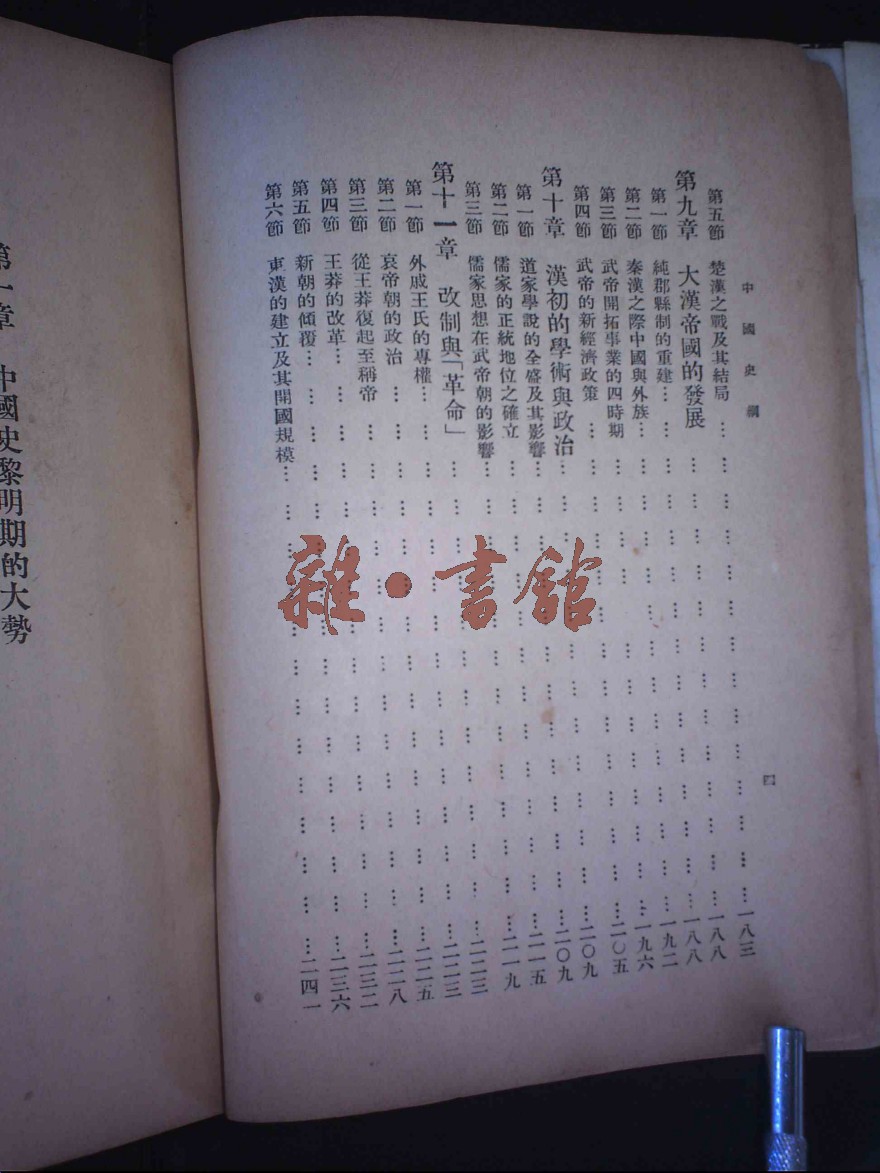 中國史綱
四
第五節 楚漢之戰及其結局……一八三
第九章 大漢帝國的發展……一八八
第一節 純郡縣制的重建……一八八
第二節 秦漢之際中國與外族……一九二
第三節 武帝開拓事業的四時期……一九六
第四節 武帝的新經濟政策……二〇五
第十章 漢初的學術與政治……二〇九
第一節 道家學說的全盛及其影響……二〇九
第二節 儒家的正統地位之確立……二一五
第三節 儒家思想在武帝朝的影響……二一九
第十一章 改制與「革命」……二二三
第一節 外戚王氏的專權……二二三
第二節 哀帝朝的政治……二二五
第三節 從王莽復起至稱帝……二二八
第四節 王莽的改革……二三二
第五節 新朝的傾覆……二三六
第六節 東漢的建立及其開國規模……二四一
第一章 中國史黎明期的大勢
雜·書館